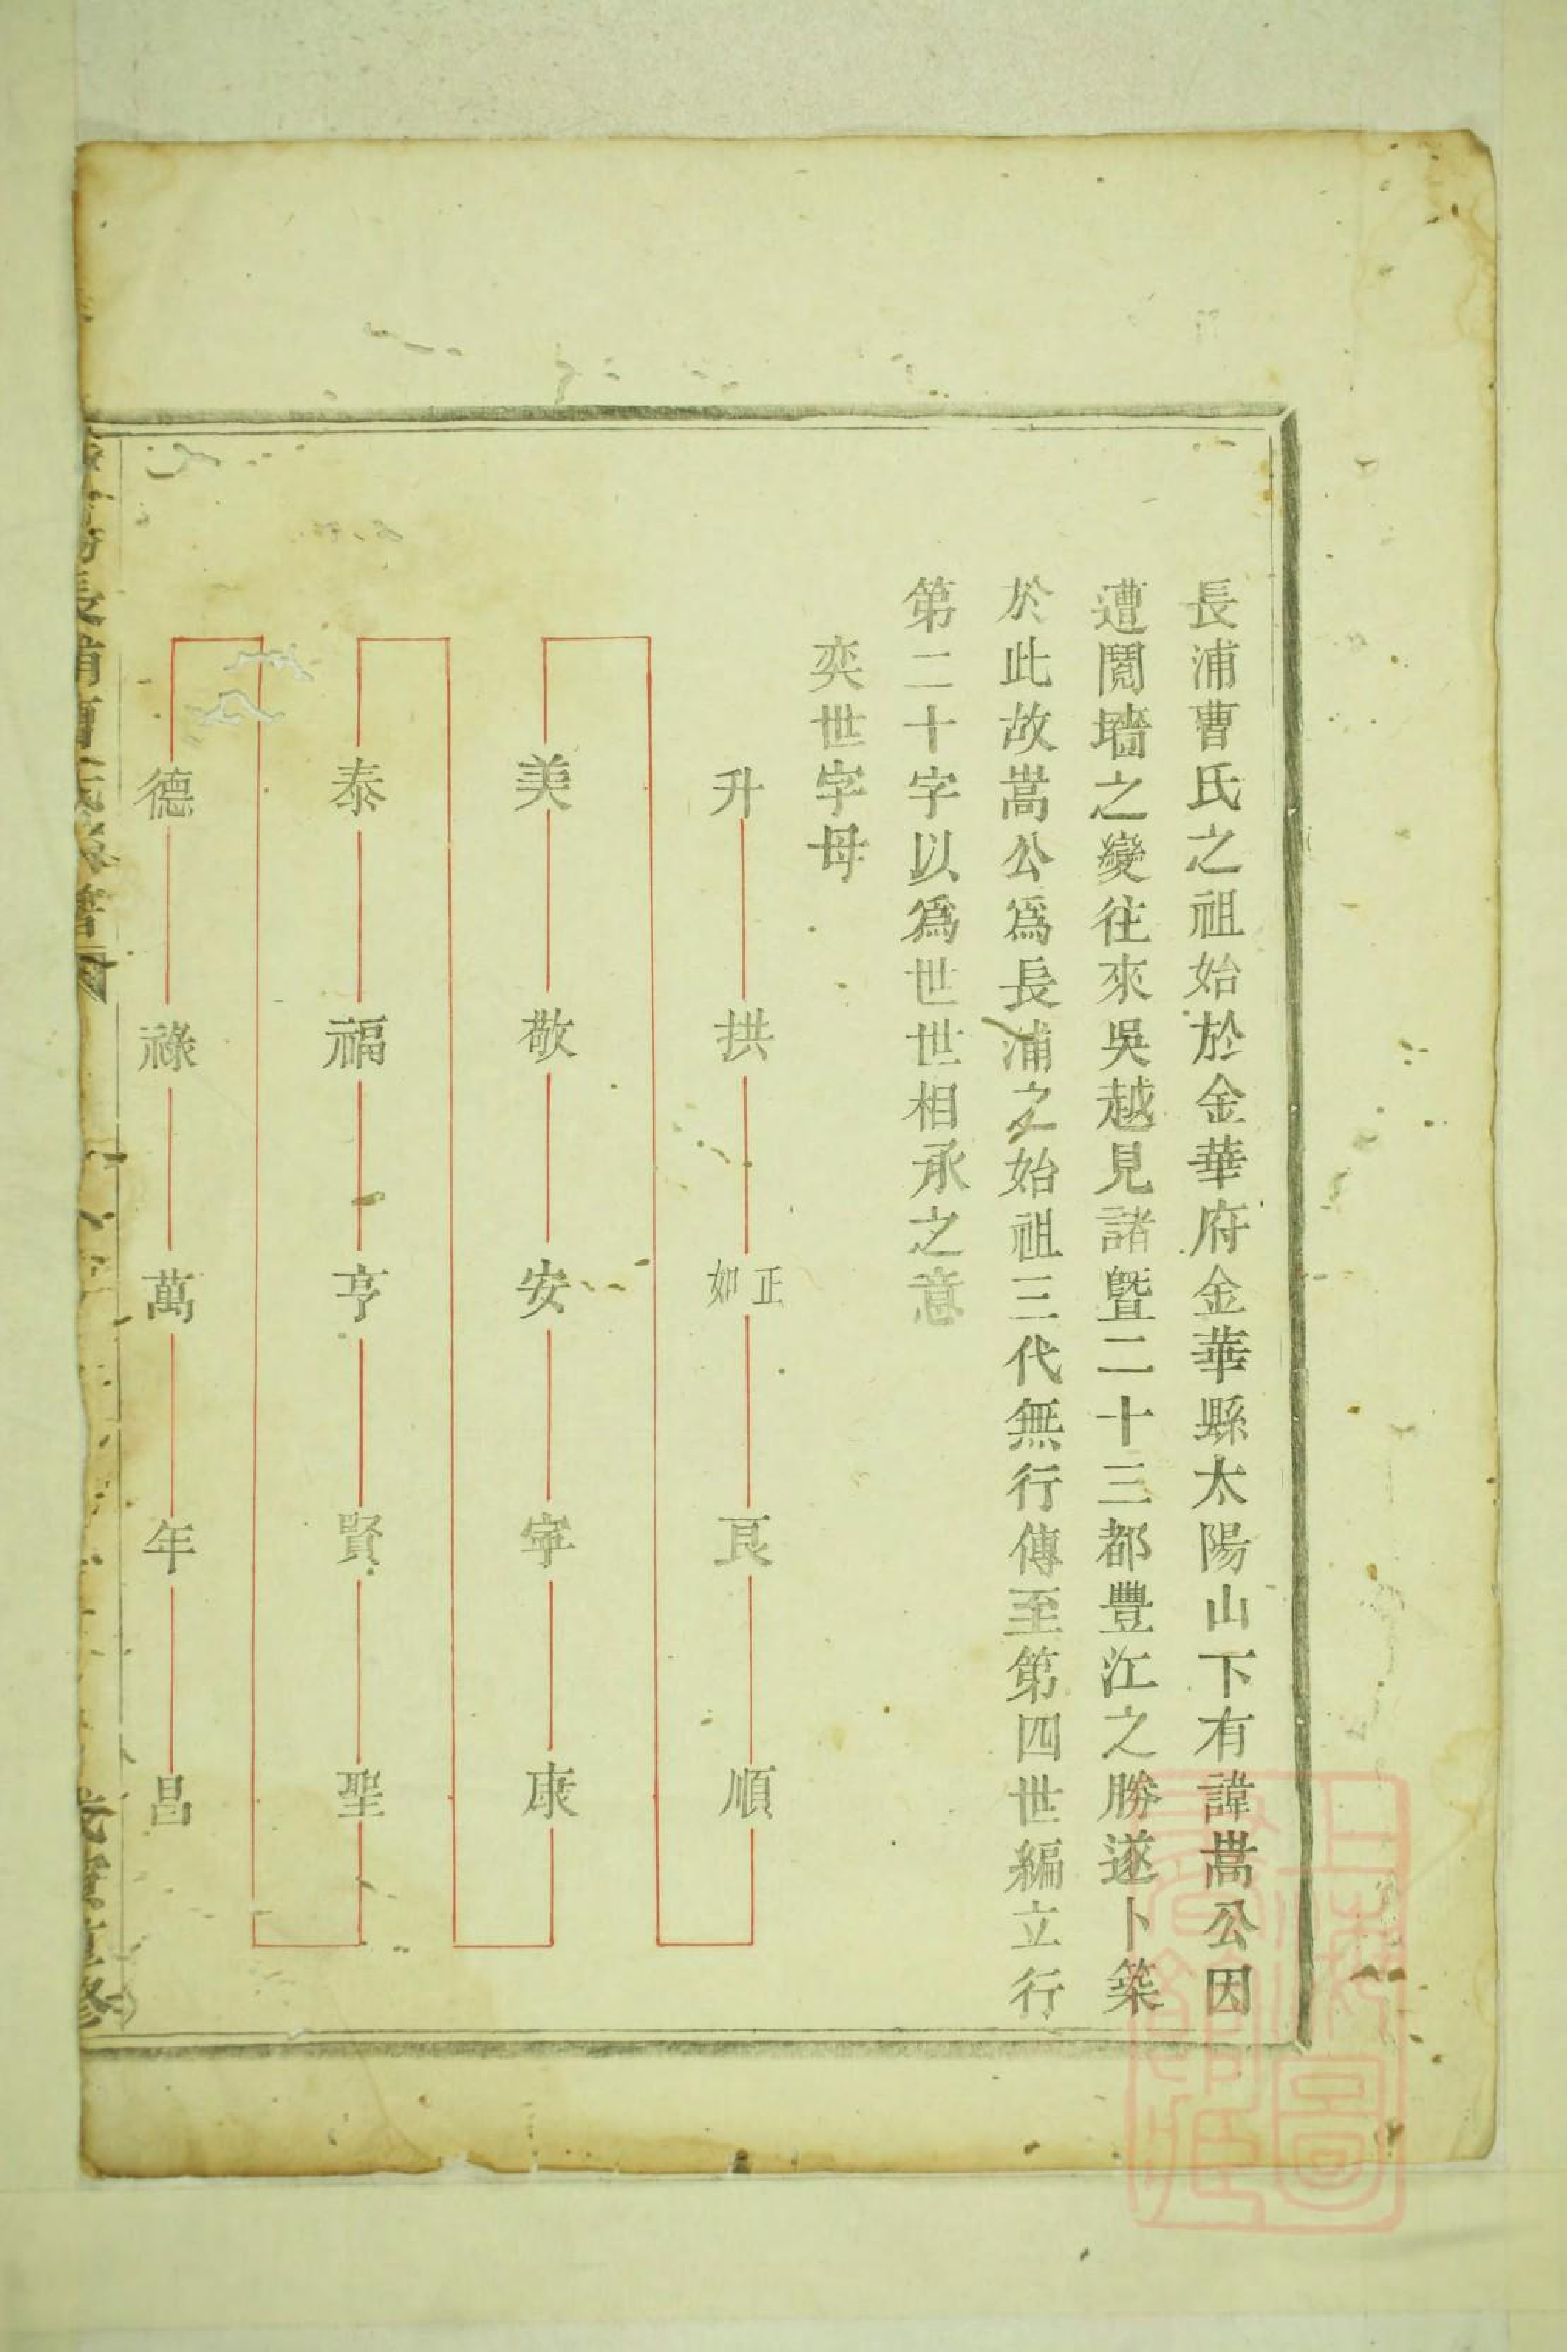 長浦曹氏之祖始於金華府金華縣太陽山下有諱嵩公因
遭鬩墻之變往來吳越見諸暨二十三都豐江之勝遂卜築
於此故嵩公爲長浦之始祖三代無行傳至第四世編立行
第二十字以爲世世相承之意
奕世字母
升 拱 正如 良 順
美 敬 安 寧 康
泰 福 亨 賢 聖
德 祿 萬 年 昌
上海圖
書館藏